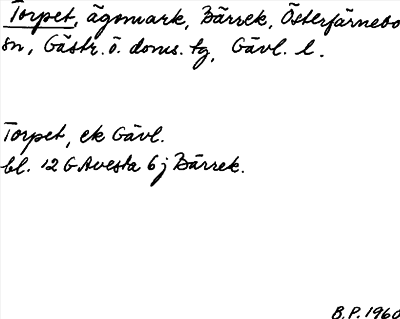 Torpet, ägomark, Bärrek, Österfärnebo
sn, Gästr. ö. doms. tg, Gävl. l.
Torpet, ek Gävl.
bl. 12 G Avesta 6 j Bärrek.
B.P. 1960